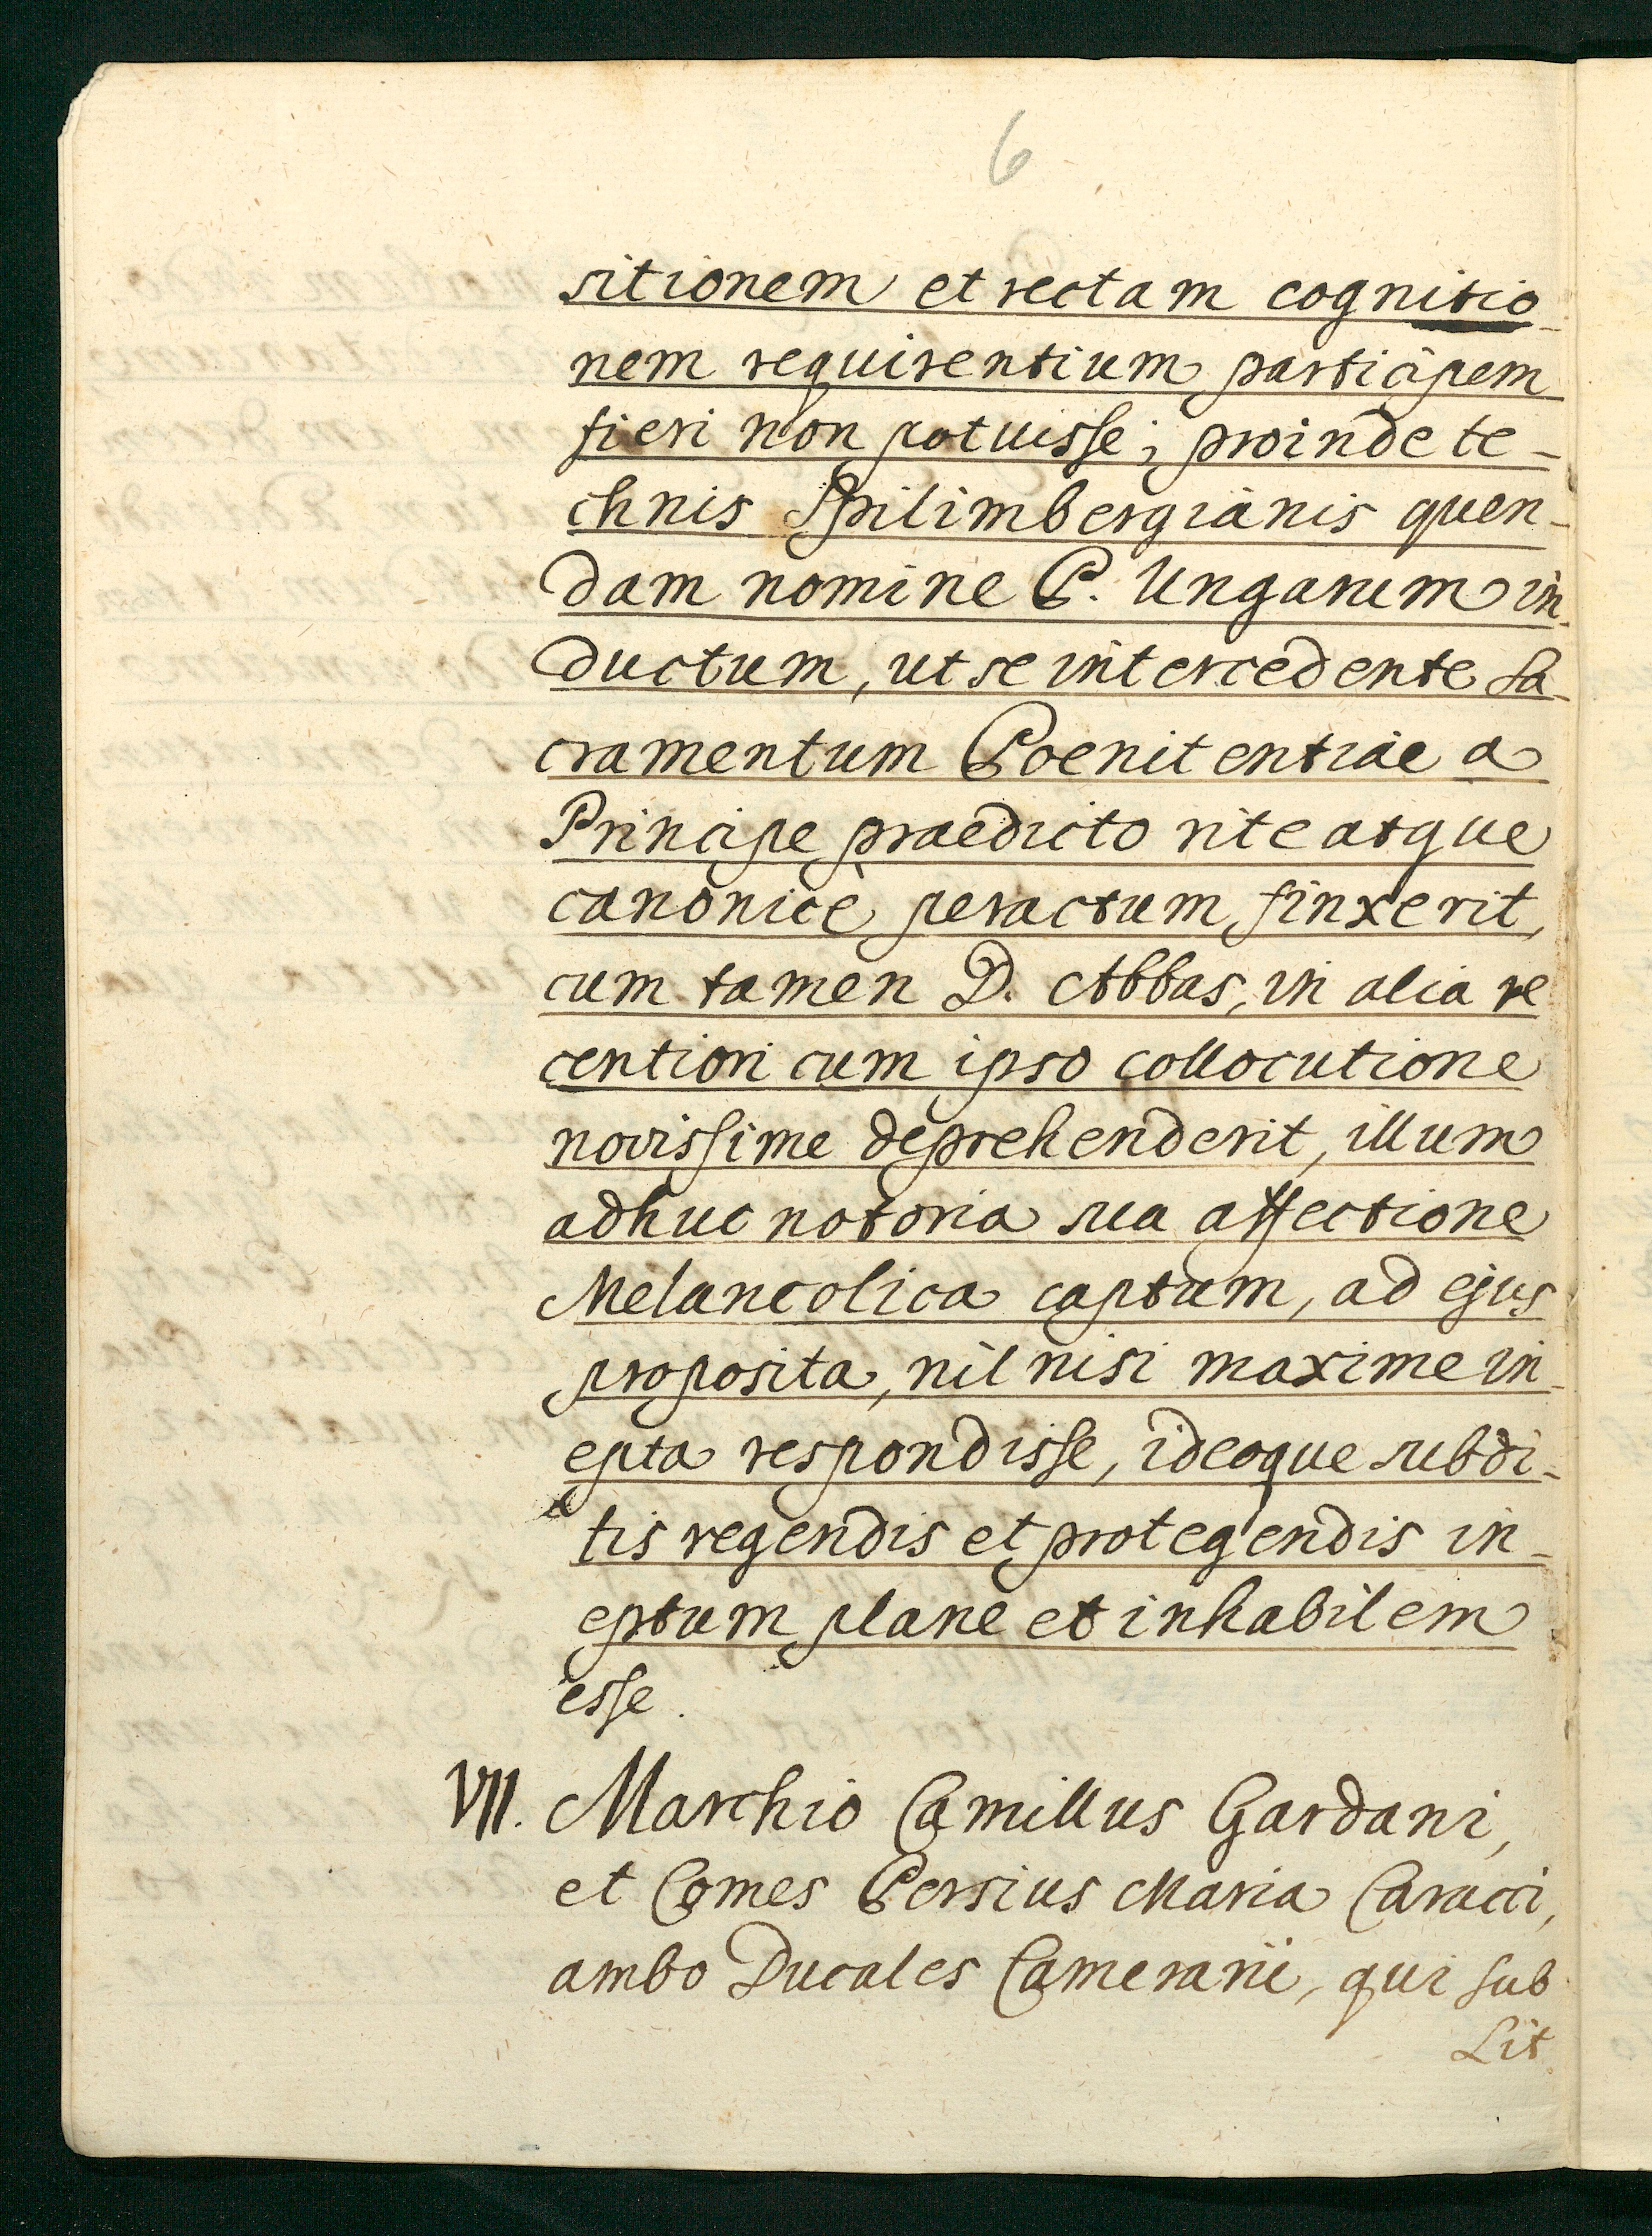 6
sitionem et rectam cognitio-
nem requirentium participem
fieri non potuisse; proinde te-
chnis Spilimbergianis quen-
dam nomine P. Ungarum in-
ductum, ut se intercedente Sa-
cramentum Poenitentiae a
Principe praedicto rite atque
canonicè peractum finxerit,
cum tamen D. Abbas, in alia re
centiori cum ipso collocutione
novissime deprehenderit, illum
adhuc notoria sua affectione
Melancolica captum, ad ejus
proposita, nil nisi maxime in-
epta respondisse, ideoque subdi-
tis regendis et protegendis in-
eptum plane et inhabilem
esse.
VII. Marchio Camillus Gardani,
et Comes Persius Maria Caracci,
ambo Ducales Camerarii, qui sub
Lit.